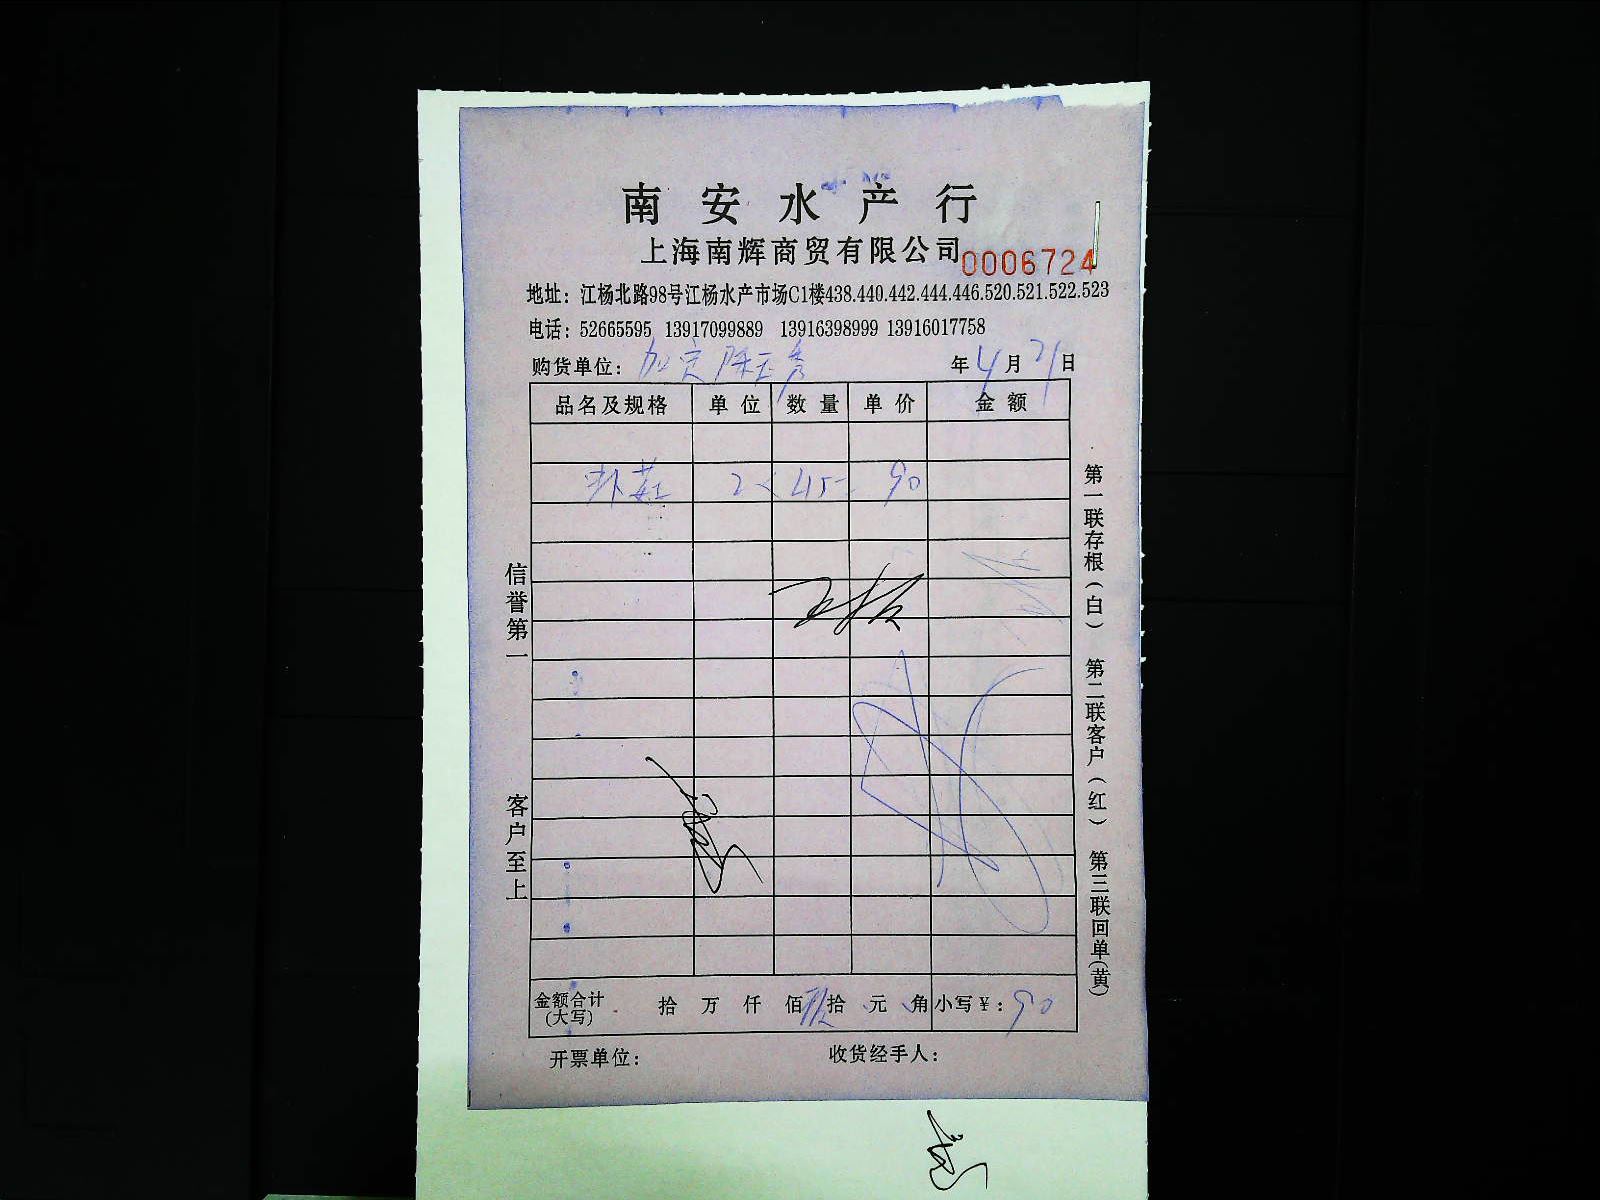 南安水产行
上海南辉商贸有限公司 0006724
地址：江杨北路98号江杨水产市场C1楼438.440.442.444.446.520.521.522.523
电话：52665595 13917099889 13916398999 13916017758
购货单位： 年 4 月 21 日
品名及规格 单位 数量 单价 金额
2 45 90
金额合计(大写) 拾 万 仟 佰 玖 拾 元 角 小写￥：90
开票单位： 收货经手人：
信誉第一
客户至上
第一联存根(白) 第二联客户(红) 第三联回单(黄)